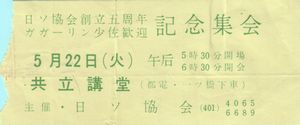 日ソ協会創立五周年
ガガーリン少佐歓迎
記念集会
5月22日(火) 午后 5時30分開場
6時30分開会
共立講堂 (都電・一ツ橋下車)
主催・日ソ協会 (401) 4065
6689